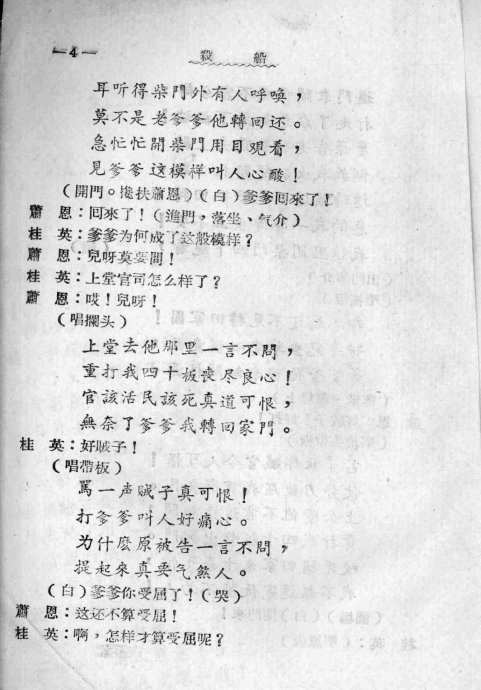 —4—　殺　船
耳听得柴門外有人呼喚，
莫不是老爹爹他轉回还。
急忙忙開柴門用目观看，
見爹爹这模样叫人心酸！
(開門。攙扶蕭恩)(白)爹爹囘來了！
蕭　恩：囘來了！(進門，落坐、气介)
桂　英：爹爹为何成了这般模样？
蕭　恩：兒呀莫要問！
桂　英：上堂官司怎么样了？
蕭　恩：哎！兒呀！
(唱攔头)
上堂去他那里一言不問，
重打我四十板喪尽良心！
官該活民該死真道可恨，
無奈了爹爹我轉囘家門。
桂　英：好賊子！
(唱帶板)
罵一声賊子真可恨！
打爹爹叫人好痛心。
为什麽原被告一言不問，
提起來真要气煞人。
(白)爹爹你受屈了！(哭)
蕭　恩：这还不算受屈！
桂　英：啊，怎样才算受屈呢？